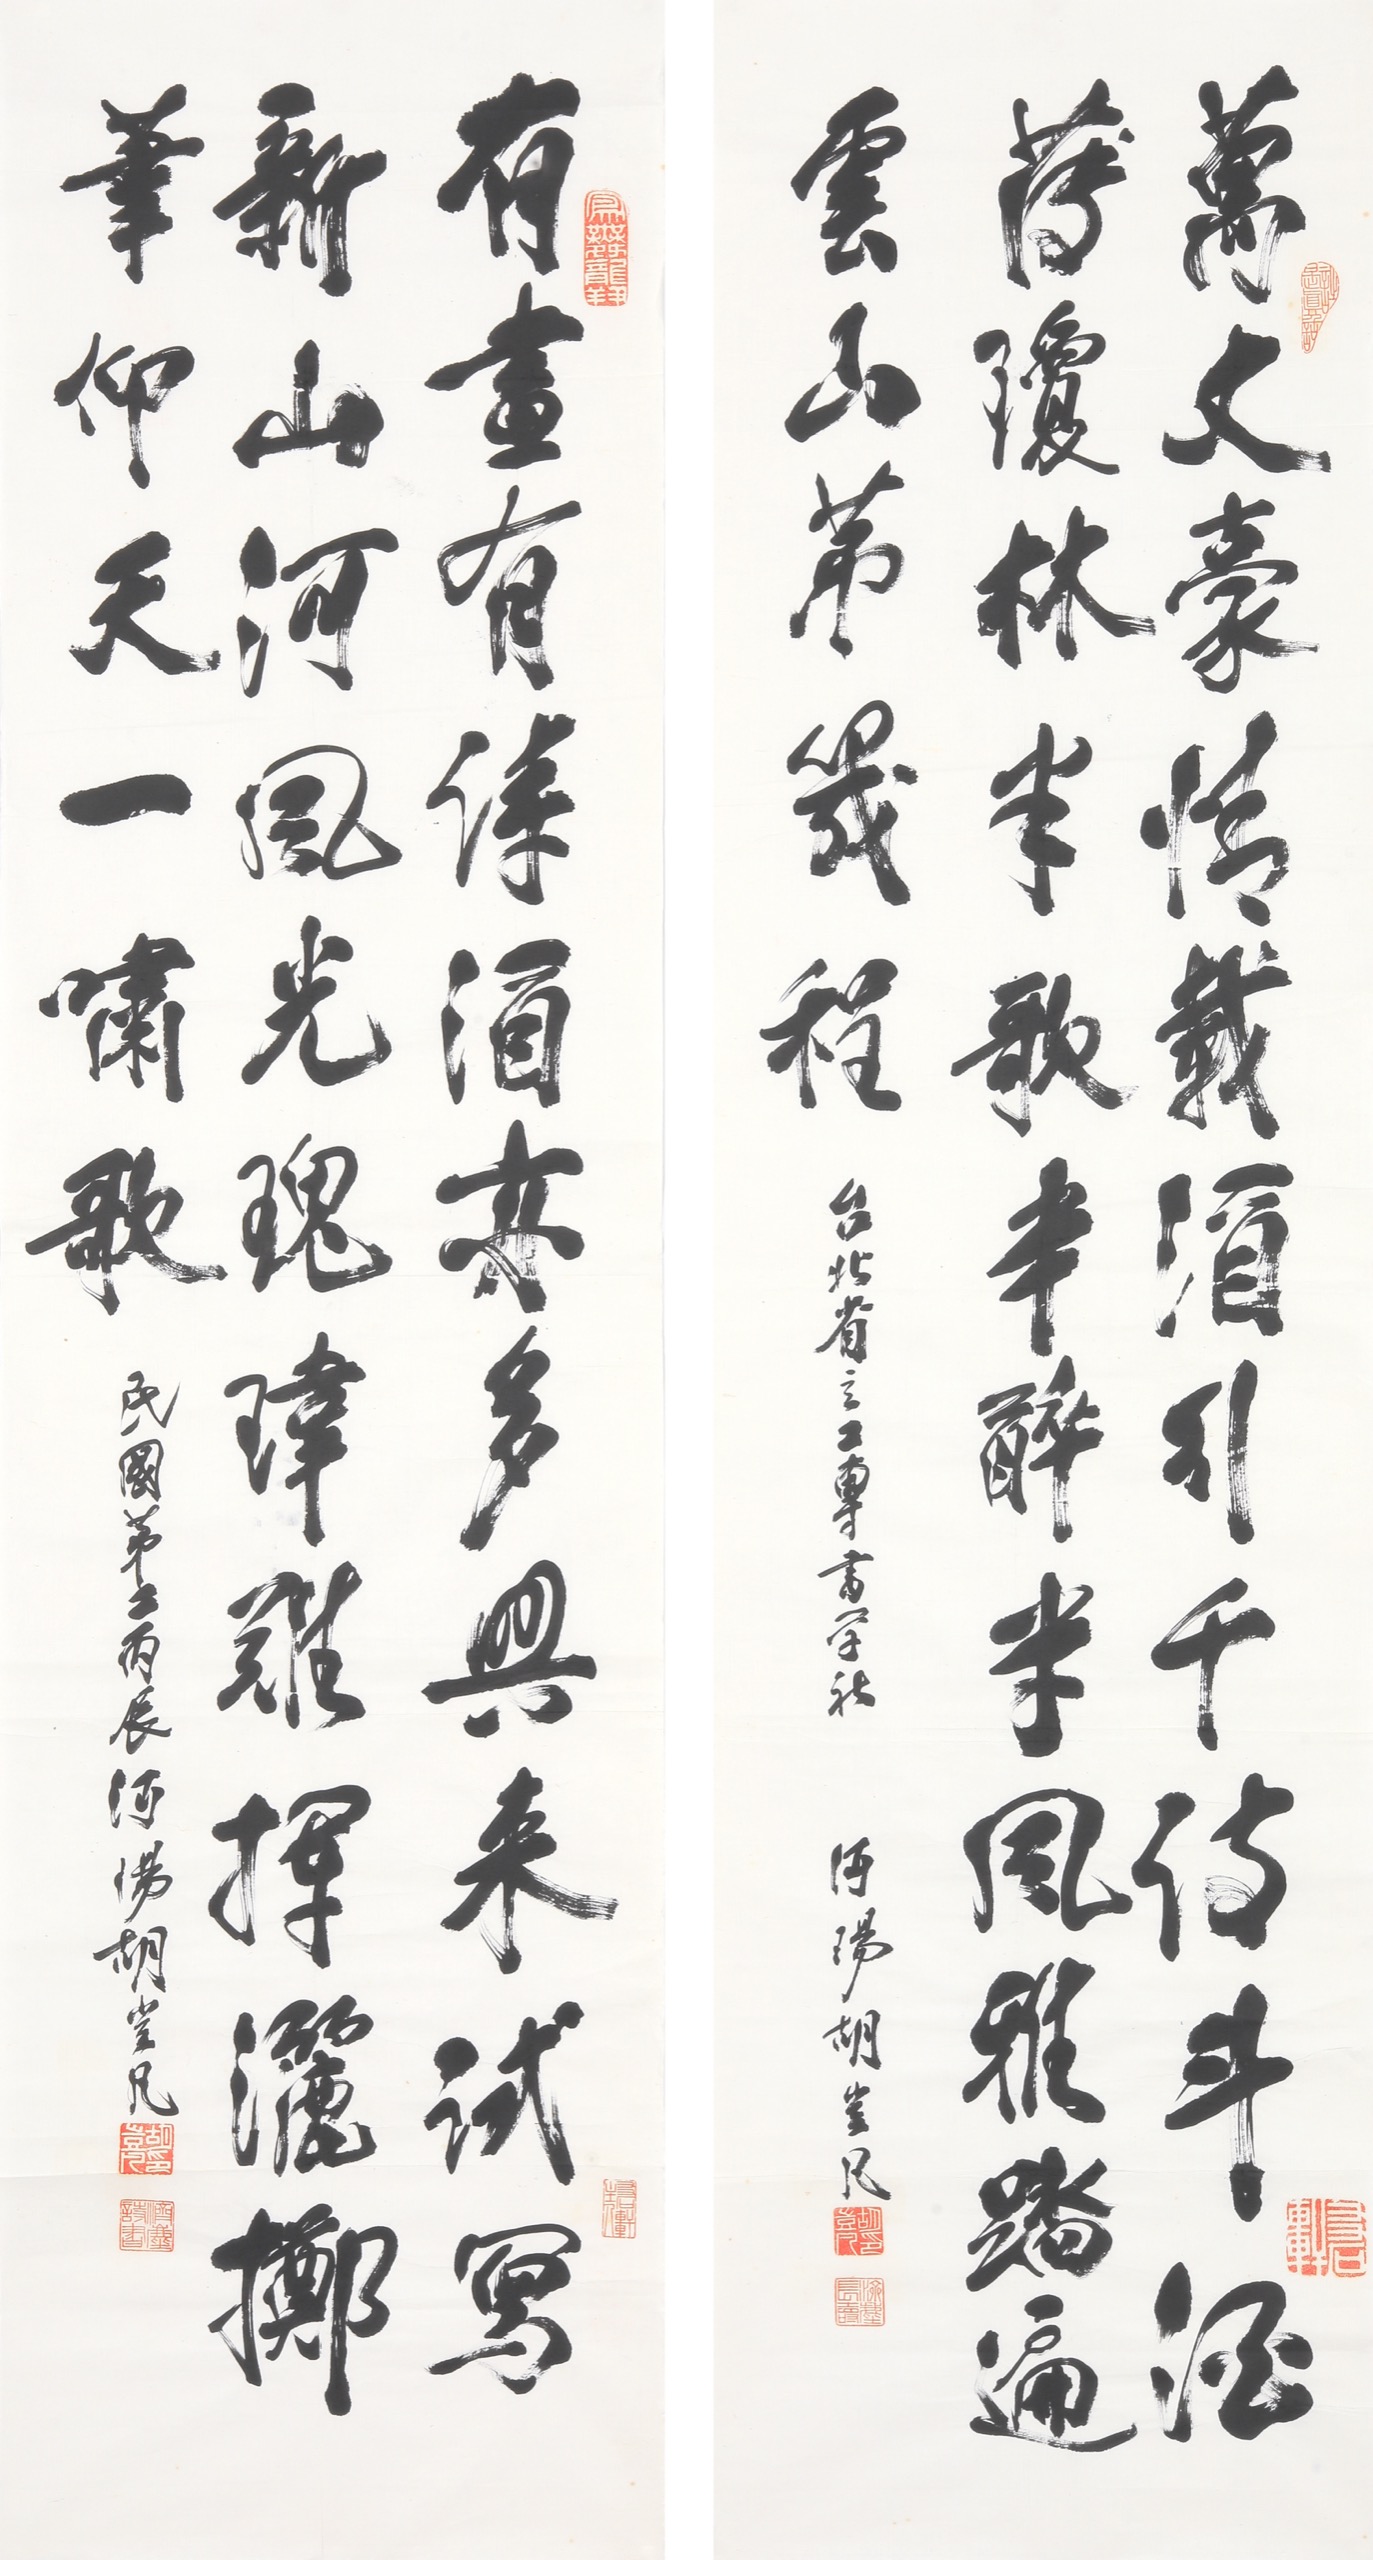 萬丈豪情載酒引千詩斗酒
薄瓊林半歌半醉半風雅踏遍
雲山第幾程
台北省立工專書學社
河陽胡豈凡
有畫有詩酒亦多興來試寫
新山河風光瑰瑋難揮灑擲
筆仰天一嘯歌
民國第二丙辰河陽胡豈凡